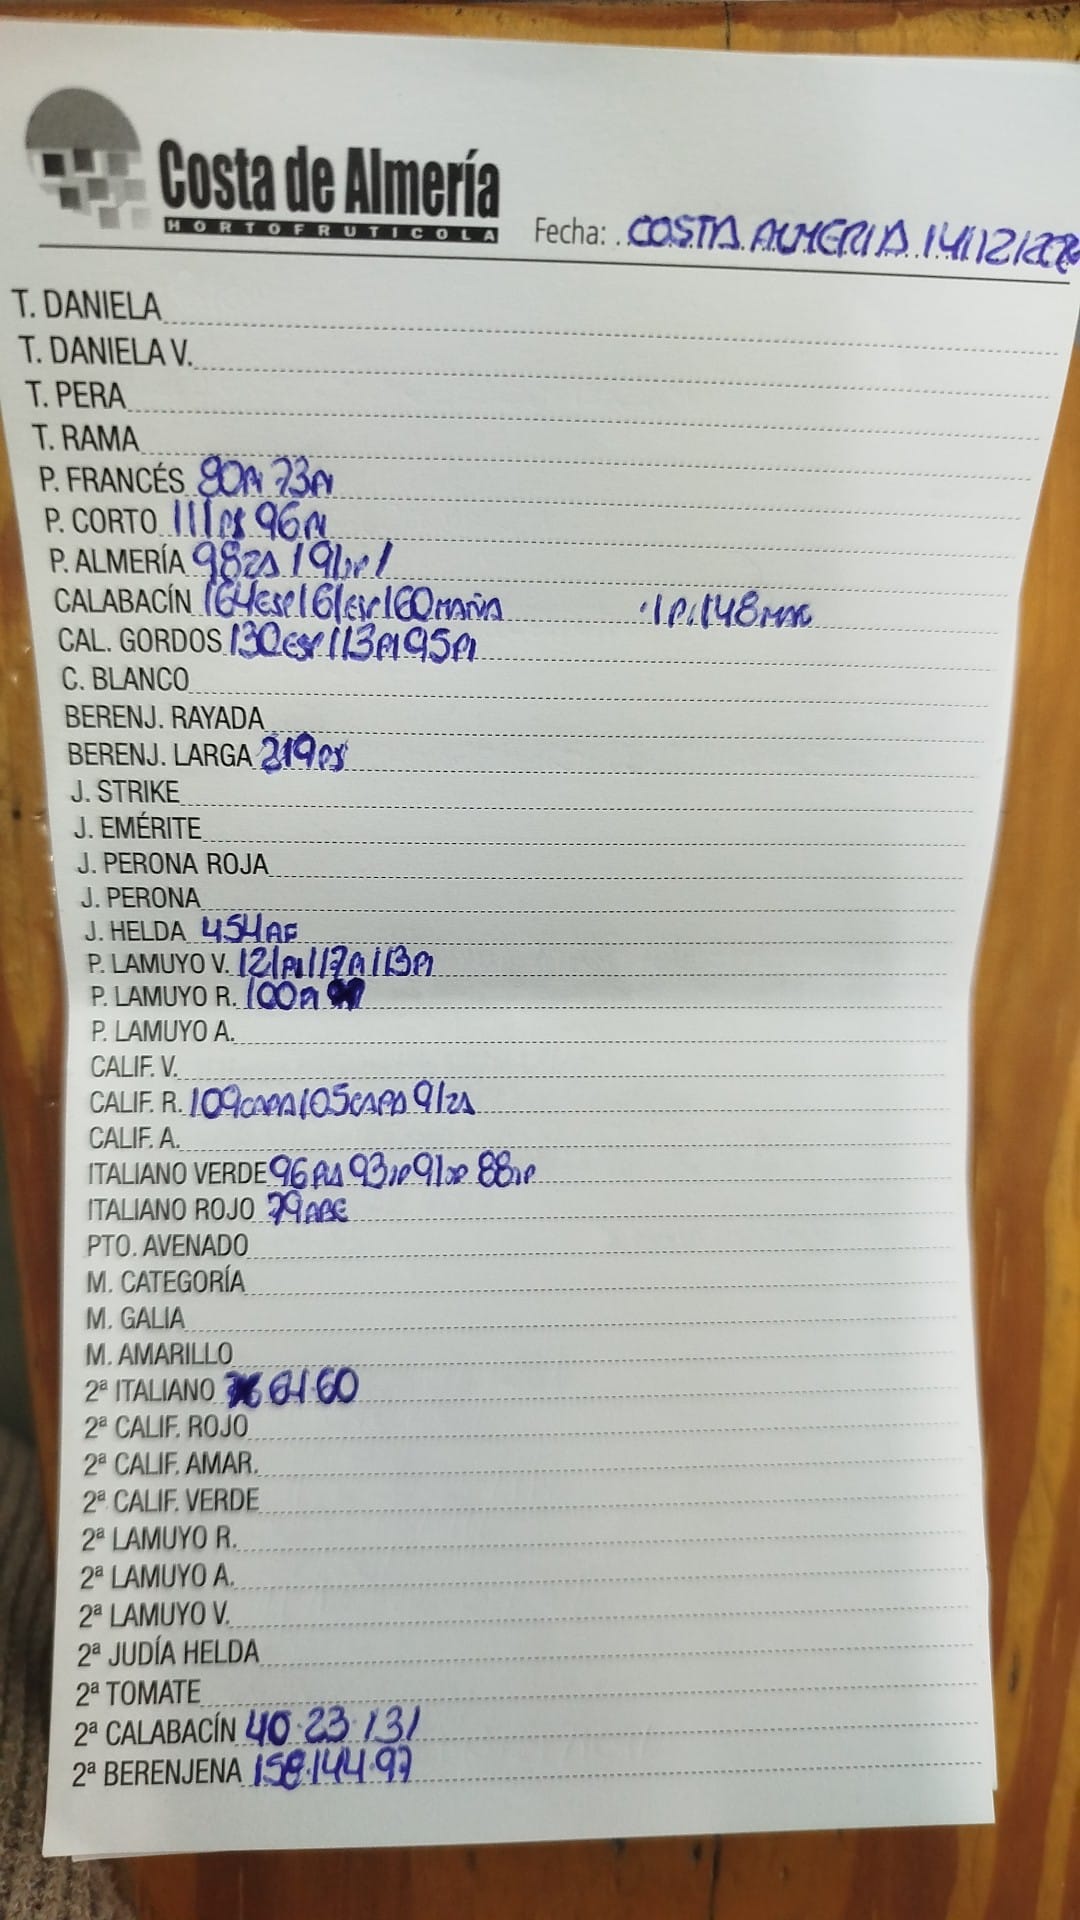 Costa de Almería
HORTOFRUTICOLA
Fecha: COSTA ALMERIA 14/12/202
T. DANIELA
T. DANIELA V.
T. PERA
T. RAMA
P. FRANCÉS 80PI 73PI
P. CORTO 111PS 96PI
P. ALMERÍA 98ZA 91JP
CALABACÍN 164ESP 161ESP 160MAÑA 148MAC
CAL. GORDOS 130ESP 113PI 95PI
C. BLANCO
BERENJ. RAYADA
BERENJ. LARGA 219PS
J. STRIKE
J. EMÉRITE
J. PERONA ROJA
J. PERONA
J. HELDA 454AF
P. LAMUYO V. 121PI 117PI 113PI
P. LAMUYO R. 100PI
P. LAMUYO A.
CALIF. V.
CALIF. R. 109CAPA 105CAPA 91ZA
CALIF. A.
ITALIANO VERDE 96PLA 93JP 91JP 88JP
ITALIANO ROJO 79ABE
PTO. AVENADO
M. CATEGORÍA
M. GALIA
M. AMARILLO
2ª ITALIANO 61·60
2ª CALIF. ROJO
2ª CALIF. AMAR.
2ª CALIF. VERDE
2ª LAMUYO R.
2ª LAMUYO A.
2ª LAMUYO V.
2ª JUDÍA HELDA
2ª TOMATE
2ª CALABACÍN 40·23·131
2ª BERENJENA 158·144·97